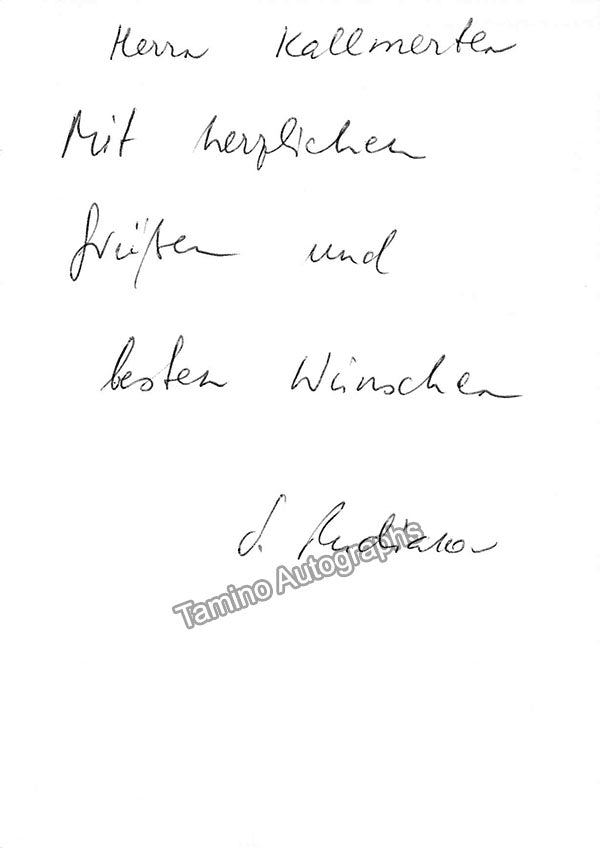 Herrn Kallmerten
Mit herzlichen
Grüßen und
besten Wünschen
S. Rudiakov
Tamino Autographs